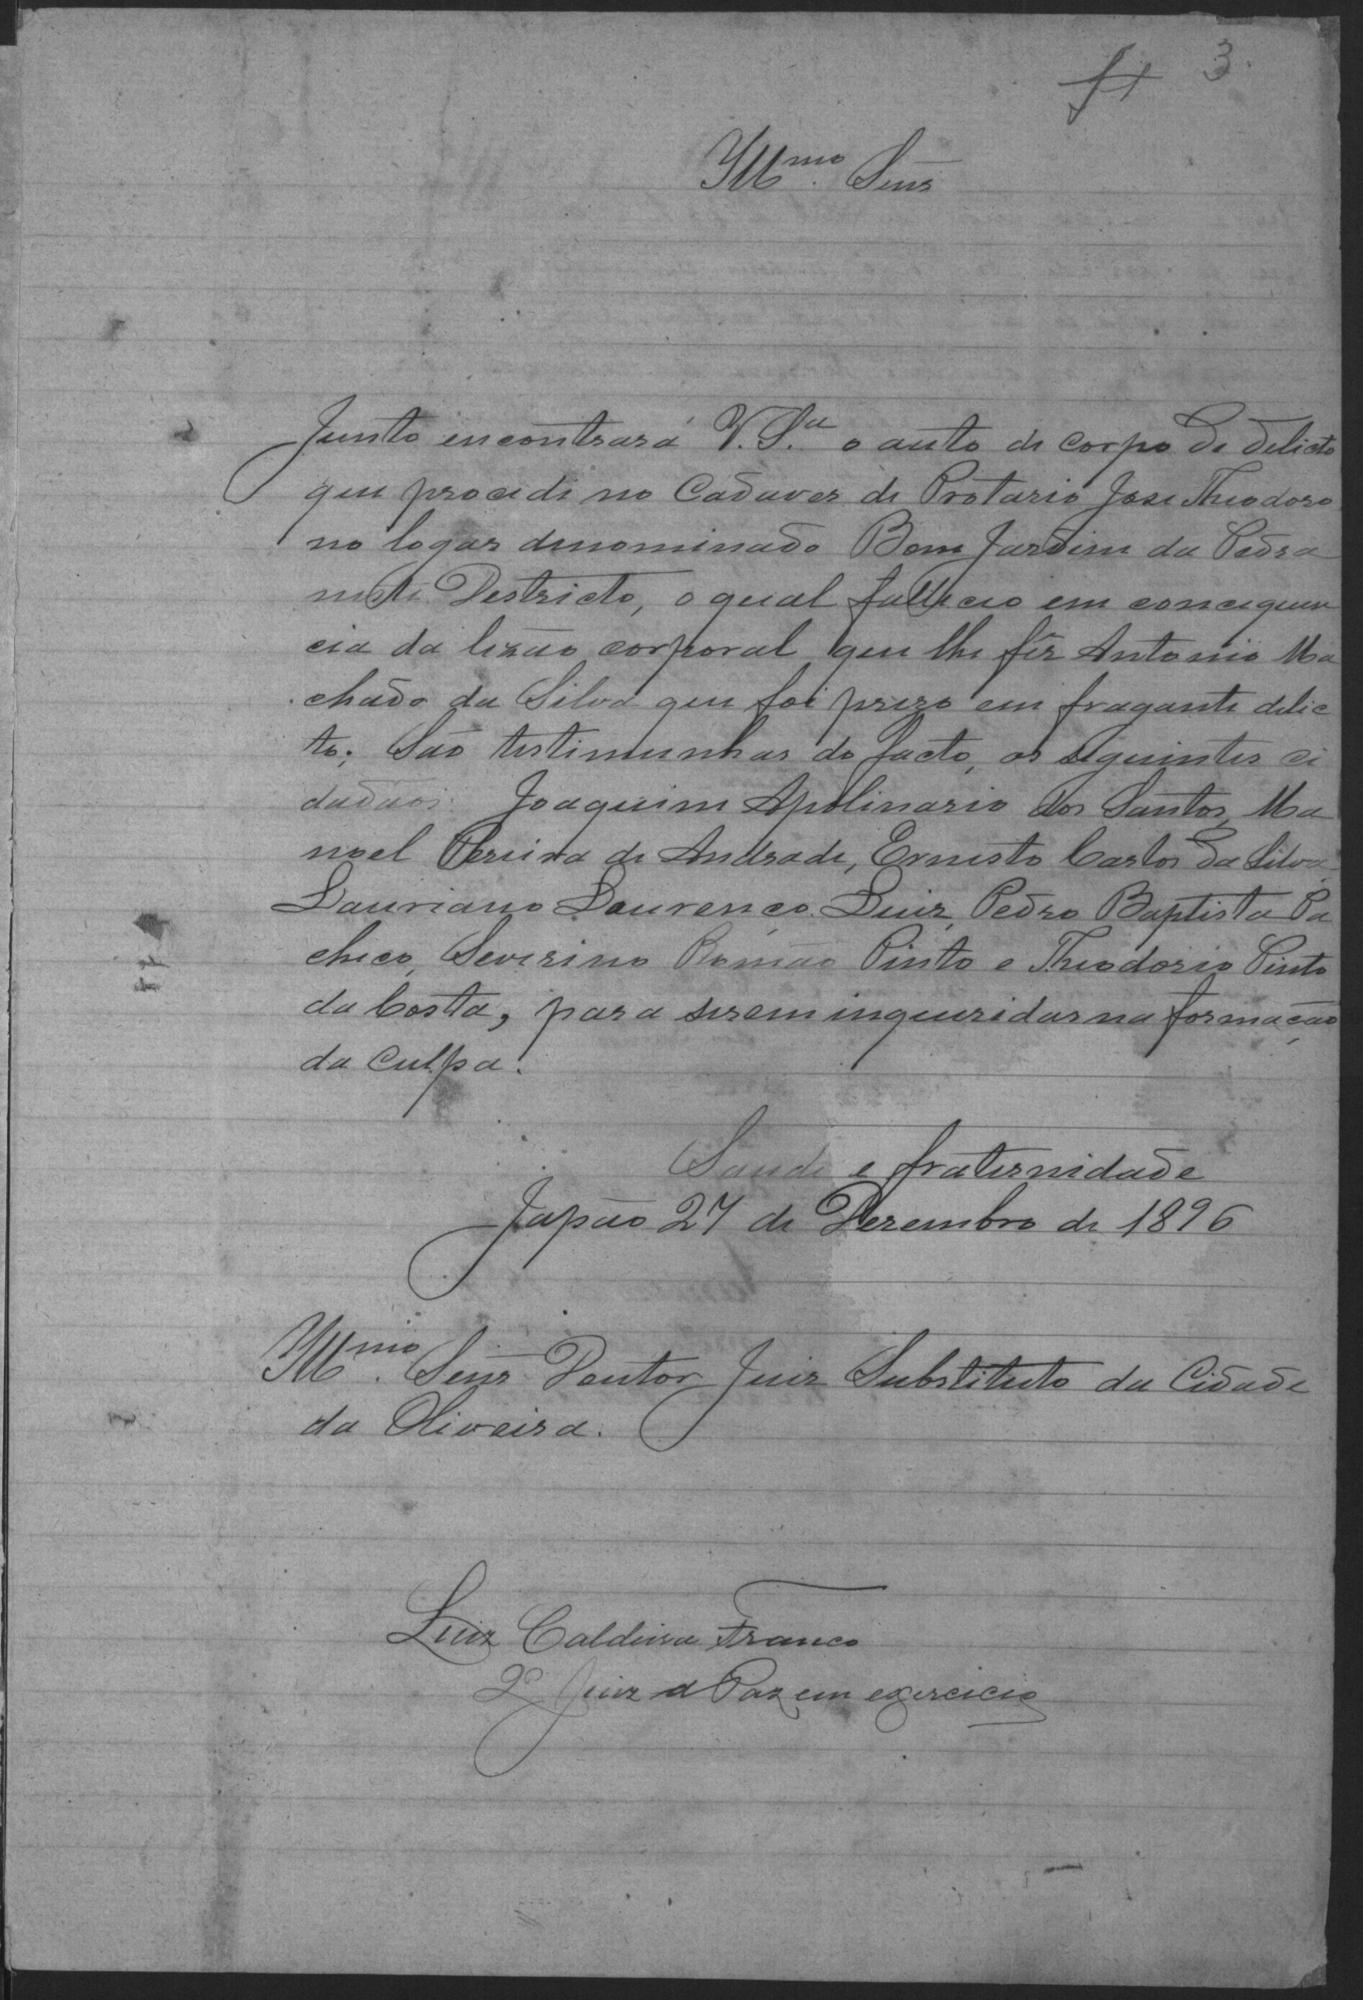 fl 3.
Illmo. Senr
Junto encontrará V. Sa. o auto de corpo de delicto
que procedi no Cadaver de Protazio José Theodoro
no logar denominado Bom Jardim da Pedra
neste Destricto, o qual falleceo em concequen
cia da lezão corporal que lhe fêz Antonio Ma
chado da Silva que foi prezo em fragante delic
to; São testimunhas do facto, os seguintes ci
dadãos: Joaquim Apolinario dos Santos, Ma
noel Pereira de Andrade, Ernesto Carlos da Silva,
Lauriano Lourenço Luiz, Pedro Baptista Pa
checo, Severino Romão Pinto e Theodorio Pinto
da Costa, para serem inqueridas na formação
da culpa.
Saude e fraternidade
Japão 27 de Dezembro de 1896
Illmo. Senr Doutor Juiz Substituto da Cidade
da Oliveira.
Luiz Caldeira Franco
2º Juiz de Paz em exercicio